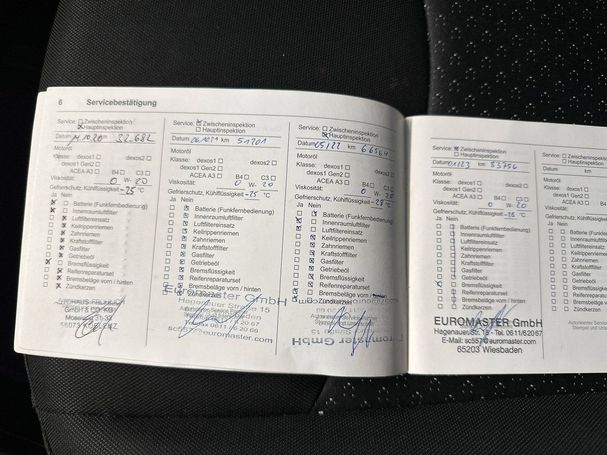 6 Servicebestätigung
Service: Zwischeninspektion
Hauptinspektion
Datum 10.20 km 32.682
Motoröl
Klasse: dexos1 dexos2
dexos1 Gen2
ACEA A3 B4 C3
Viskosität: 0 W-20
Gefrierschutz, Kühlflüssigkeit -25 °C
Ja Nein
Batterie (Funkfernbedienung)
Innenraumluftfilter
Luftfiltereinsatz
Keilrippenriemen
Zahnriemen
Kraftstofffilter
Gasfilter
Getriebeöl
Bremsflüssigkeit
Reifenreparaturset
Bremsbeläge vorn / hinten
Zündkerzen
56073 KOBLENZ
Service: Zwischeninspektion
Hauptinspektion
Datum 06.10.21 km 51201
Motoröl
Klasse: dexos1 dexos2
dexos1 Gen2
ACEA A3 B4 C3
Viskosität: 0 W-20
Gefrierschutz, Kühlflüssigkeit -25 °C
Ja Nein
Batterie (Funkfernbedienung)
Innenraumluftfilter
Luftfiltereinsatz
Keilrippenriemen
Zahnriemen
Kraftstofffilter
Gasfilter
Getriebeöl
Bremsflüssigkeit
Reifenreparaturset
Bremsbeläge vorn / hinten
Zündkerzen
Euromaster GmbH
Hagenauer Straße 15
Service: Zwischeninspektion
Hauptinspektion
Datum 05/22 km 66564
Motoröl
Klasse: dexos1 dexos2
dexos1 Gen2
ACEA A3 B4 C3
Viskosität: 0 W-20
Gefrierschutz, Kühlflüssigkeit -28 °C
Ja Nein
Batterie (Funkfernbedienung)
Innenraumluftfilter
Luftfiltereinsatz
Keilrippenriemen
Zahnriemen
Kraftstofffilter
Gasfilter
Getriebeöl
Bremsflüssigkeit
Reifenreparaturset
Bremsbeläge vorn / hinten
Zündkerzen
Euromaster GmbH
Service: Zwischeninspektion
Hauptinspektion
Datum 01/23 km 83756
Motoröl
Klasse: dexos1 dexos2
dexos1 Gen2
ACEA A3 B4 C3
Viskosität: 0 W-20
Gefrierschutz, Kühlflüssigkeit -25 °C
Ja Nein
Batterie (Funkfernbedienung)
Innenraumluftfilter
Luftfiltereinsatz
Keilrippenriemen
Zahnriemen
Kraftstofffilter
Gasfilter
Getriebeöl
Bremsflüssigkeit
Reifenreparaturset
Bremsbeläge vorn / hinten
Zündkerzen
EUROMASTER GmbH
Hagenauer Str. 15 - Tel. 0611/62067
E-Mail: sc557@euromaster.com
65203 Wiesbaden
Service: Zwischen
Hauptins
Datum
Motoröl
Klasse: dexos1
dexos1 Gen2
ACEA A3
Viskosität:
Gefrierschutz, Kühlflüssigk
Ja Nein
Batterie (Funkf
Innenraumluft
Luftfiltereinsatz
Keilrippenriem
Zahnriemen
Kraftstofffilter
Gasfilter
Getriebeöl
Bremsflüssigk
Reifenreparatu
Bremsbeläge v
Zündkerzen
Autorisierter Servi
Stempel, Unt